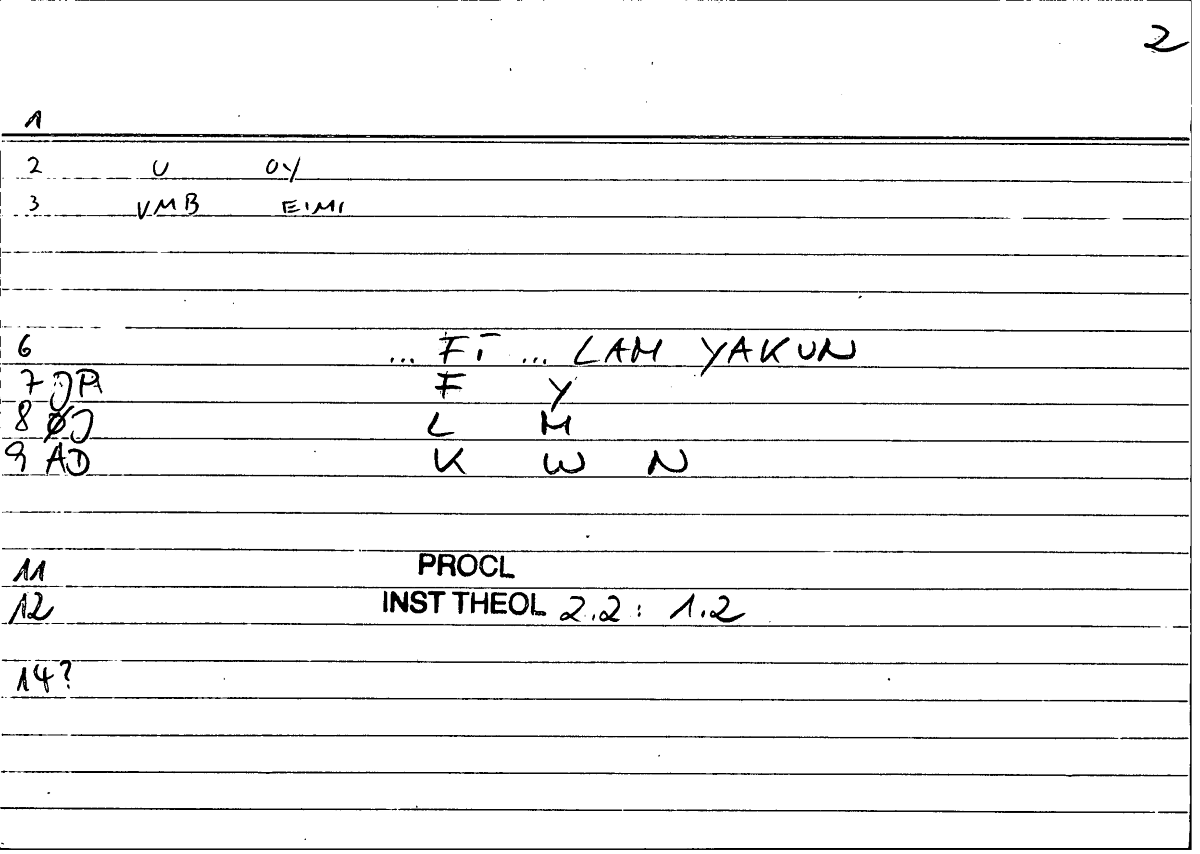 2
1
2 U OY
3 VMB EIMI
6 ... FĪ ... LAM YAKUN
7 JP F Y
8 ØJ L M
9 AD K W N
11 PROCL
12 INST THEOL 2.2: 1.2
14?